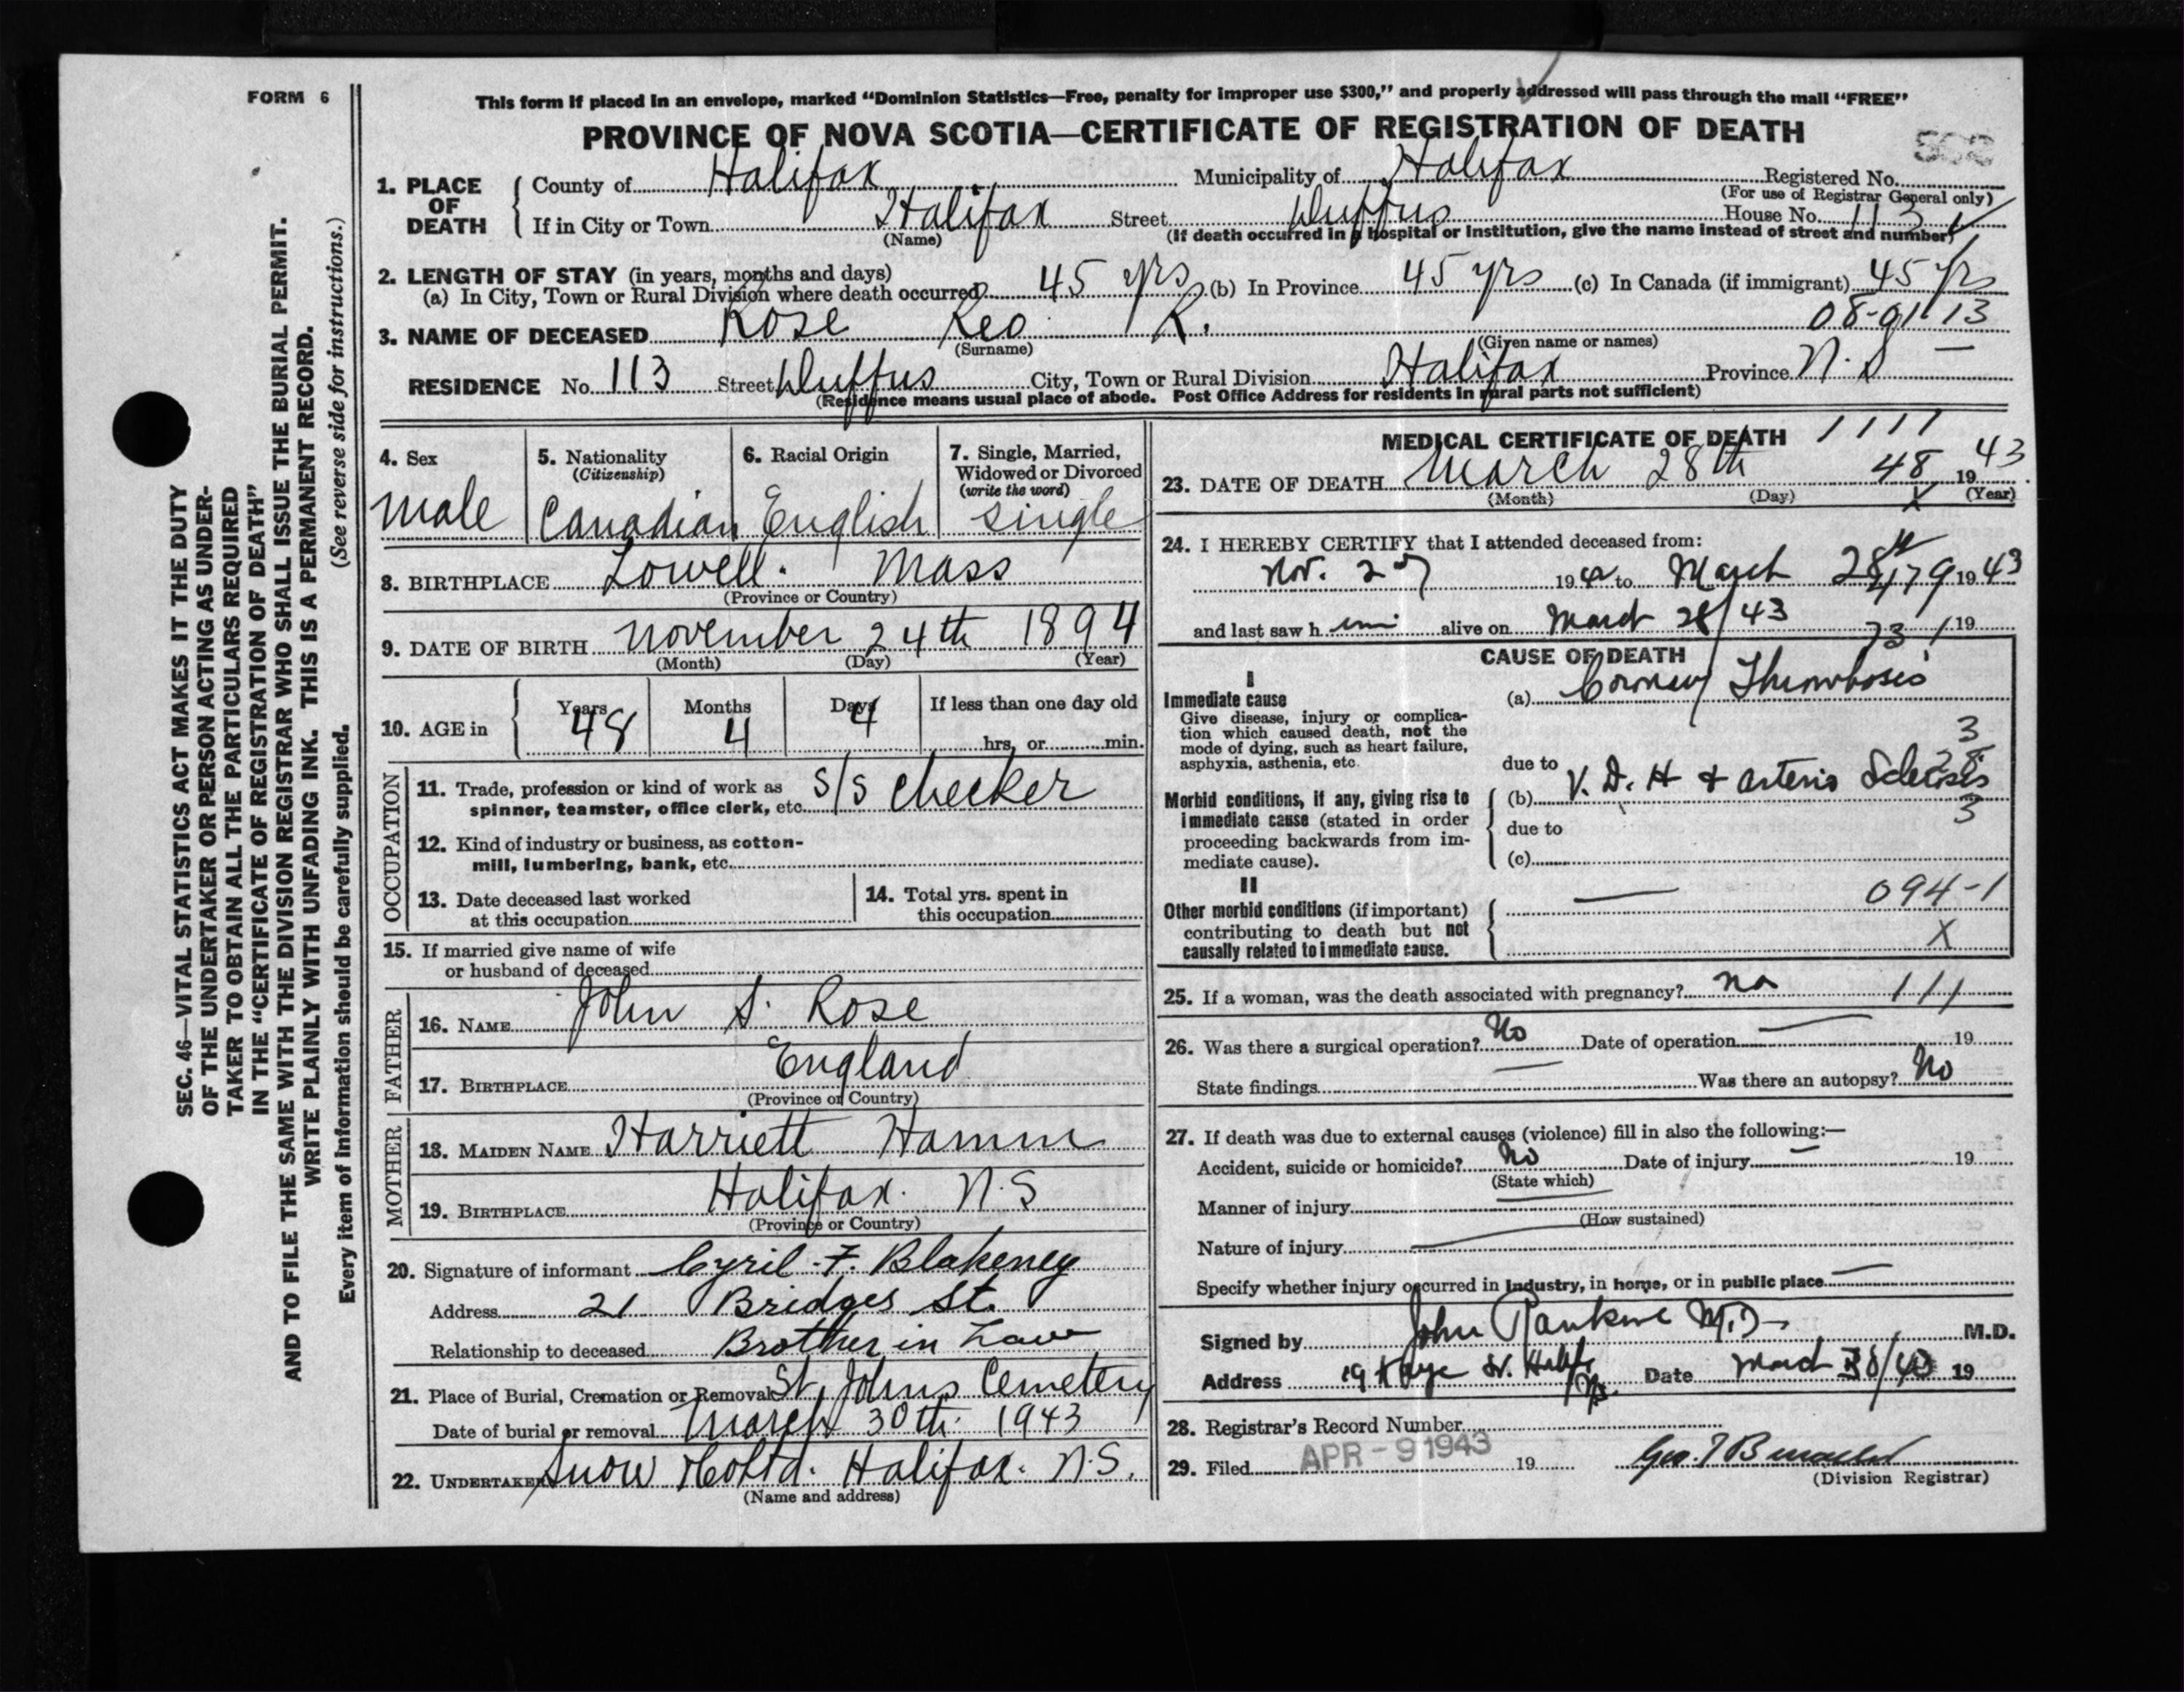 FORM 6
This form if placed in an envelope, marked “Dominion Statistics—Free, penalty for improper use $300,” and properly addressed will pass through the mail “FREE”
PROVINCE OF NOVA SCOTIA—CERTIFICATE OF REGISTRATION OF DEATH
1. PLACE OF DEATH County of Halifax Municipality of Halifax Registered No.
(For use of Registrar General only)
If in City or Town Halifax Street Duffus House No. 113
(Name) (If death occurred in a hospital or institution, give the name instead of street and number)
2. LENGTH OF STAY (in years, months and days)
(a) In City, Town or Rural Division where death occurred 45 yrs (b) In Province 45 yrs (c) In Canada (if immigrant) 45 yrs
08-01-13
3. NAME OF DECEASED Rose Leo R.
(Surname) (Given name or names)
RESIDENCE No. 113 Street Duffus City, Town or Rural Division Halifax Province N.S
(Residence means usual place of abode. Post Office Address for residents in rural parts not sufficient)
4. Sex
male
5. Nationality
(Citizenship)
Canadian
6. Racial Origin
English
7. Single, Married,
Widowed or Divorced
(write the word)
single
8. BIRTHPLACE Lowell. Mass
(Province or Country)
9. DATE OF BIRTH November 24th 1894
(Month) (Day) (Year)
10. AGE in Years 48 Months 4 Days 4 If less than one day old
hrs. or min.
OCCUPATION
11. Trade, profession or kind of work as
spinner, teamster, office clerk, etc. S/S Checker
12. Kind of industry or business, as cotton-
mill, lumbering, bank, etc.
13. Date deceased last worked
at this occupation
14. Total yrs. spent in
this occupation
15. If married give name of wife
or husband of deceased
FATHER
16. NAME John S. Rose
17. BIRTHPLACE England
(Province or Country)
MOTHER
18. MAIDEN NAME Harriett Hamm
19. BIRTHPLACE Halifax. N.S
(Province or Country)
20. Signature of informant Cyril F. Blakeney
Address 21 Bridges St.
Relationship to deceased Brother in Law
21. Place of Burial, Cremation or Removal St. Johns Cemetery
Date of burial or removal March 30th. 1943
22. UNDERTAKER Snow & Co Ltd. Halifax. N.S.
(Name and address)
MEDICAL CERTIFICATE OF DEATH 1111
23. DATE OF DEATH March 28th 48 1943
(Month) (Day) X (Year)
24. I HEREBY CERTIFY that I attended deceased from:
Nov. 27 1942 to March 28th 1943
479
and last saw h im alive on March 28/43 19
731
CAUSE OF DEATH
I
Immediate cause
Give disease, injury or complica-
tion which caused death, not the
mode of dying, such as heart failure,
asphyxia, asthenia, etc.
(a) Coronary Thrombosis
3
28
due to
Morbid conditions, if any, giving rise to
immediate cause (stated in order
proceeding backwards from im-
mediate cause).
(b) V. D. H & arterio Sclerosis
3
due to
(c)
II
Other morbid conditions (if important)
contributing to death but not
causally related to immediate cause.
094-1
X
25. If a woman, was the death associated with pregnancy? no 111
26. Was there a surgical operation? No Date of operation 19
State findings Was there an autopsy? No
27. If death was due to external causes (violence) fill in also the following:—
Accident, suicide or homicide? No Date of injury 19
(State which)
Manner of injury
(How sustained)
Nature of injury
Specify whether injury occurred in industry, in home, or in public place
Signed by John Rankine M.D. M.D.
Address 19 Kaye St. Halifax N.S. Date March 19
28. Registrar's Record Number
29. Filed APR - 9 1943 19
(Division Registrar)
SEC. 46—VITAL STATISTICS ACT MAKES IT THE DUTY
OF THE UNDERTAKER OR PERSON ACTING AS UNDER-
TAKER TO OBTAIN ALL THE PARTICULARS REQUIRED
IN THE “CERTIFICATE OF REGISTRATION OF DEATH”
AND TO FILE THE SAME WITH THE DIVISION REGISTRAR WHO SHALL ISSUE THE BURIAL PERMIT.
WRITE PLAINLY WITH UNFADING INK. THIS IS A PERMANENT RECORD.
(See reverse side for instructions.)
Every item of information should be carefully supplied.